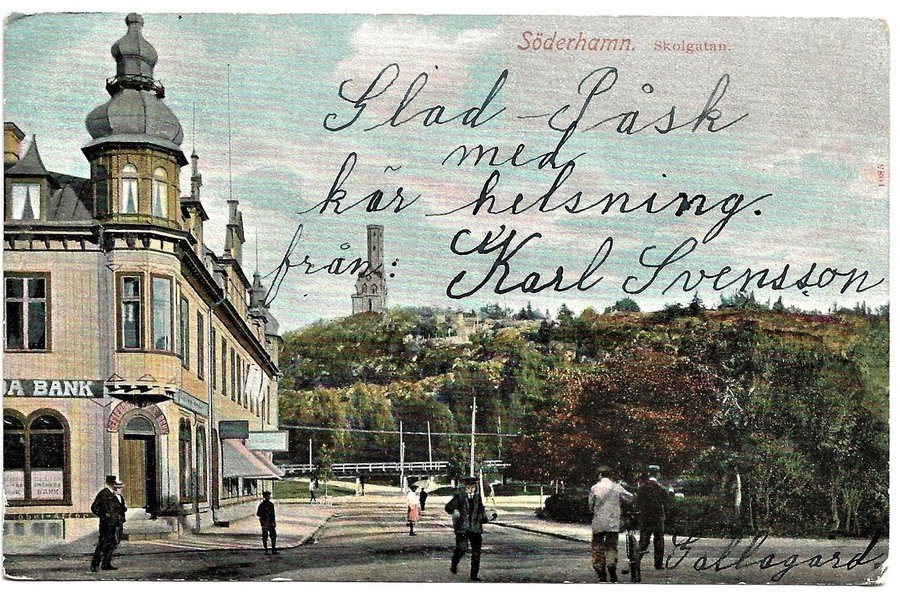 Söderhamn. Skolgatan.
Glad Påsk
med
kär helsning.
från: Karl Svensson
11085
DA BANK
BANK
Gallagard.